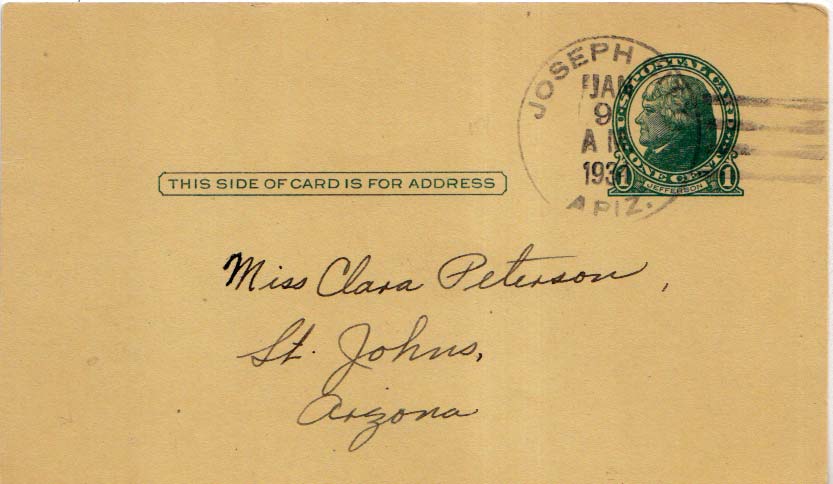 JOSEPH
JAN
9
A M
193
ARIZ.
U.S. POSTAL CARD
ONE CENT
1 JEFFERSON 1
THIS SIDE OF CARD IS FOR ADDRESS
Miss Clara Peterson,
St. Johns,
Arizona